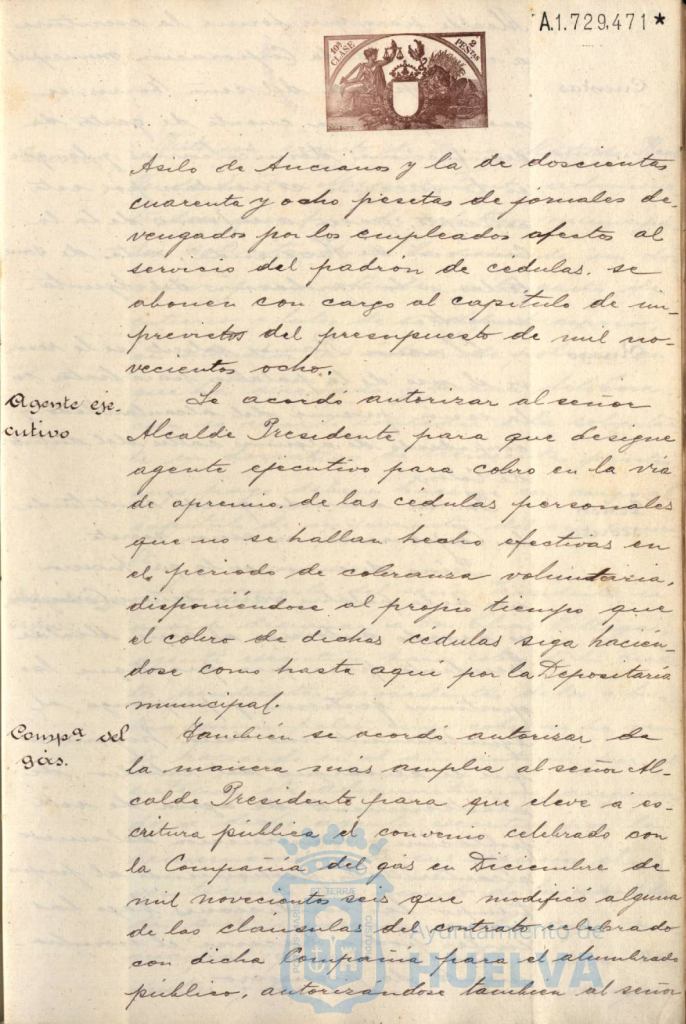 A.1.729.471*
10ª CLASE
2 PESETAS
Asilo de Ancianos y la de doscientas
cuarenta y ocho pesetas de jornales de-
vengados por los empleados afectos al
servicio del padrón de cédulas, se
abonen con cargo al capítulo de im-
previstos del presupuesto de mil no-
vecientos ocho.
Agente eje-
cutivo
Se acordó autorizar al señor
Alcalde Presidente para que designe
agente ejecutivo para cobro en la vía
de apremio, de las cédulas personales
que no se hallan hecho efectivas en
el periodo de cobranza voluntaria,
disponiéndose al propio tiempo que
el cobro de dichas cédulas siga hacién-
dose como hasta aquí por la Depositaría
municipal.
Compª del
gás.
También se acordó autorizar de
la manera más amplia al señor Al-
calde Presidente para que eleve á es-
critura pública el convenio celebrado con
la Compañía del gás en Diciembre de
mil novecientos seis que modificó alguna
de las cláusulas del contrato celebrado
con dicha Compañía para el alumbrado
público, autorizándose tambien al señor
Ayuntamiento de
HUELVA